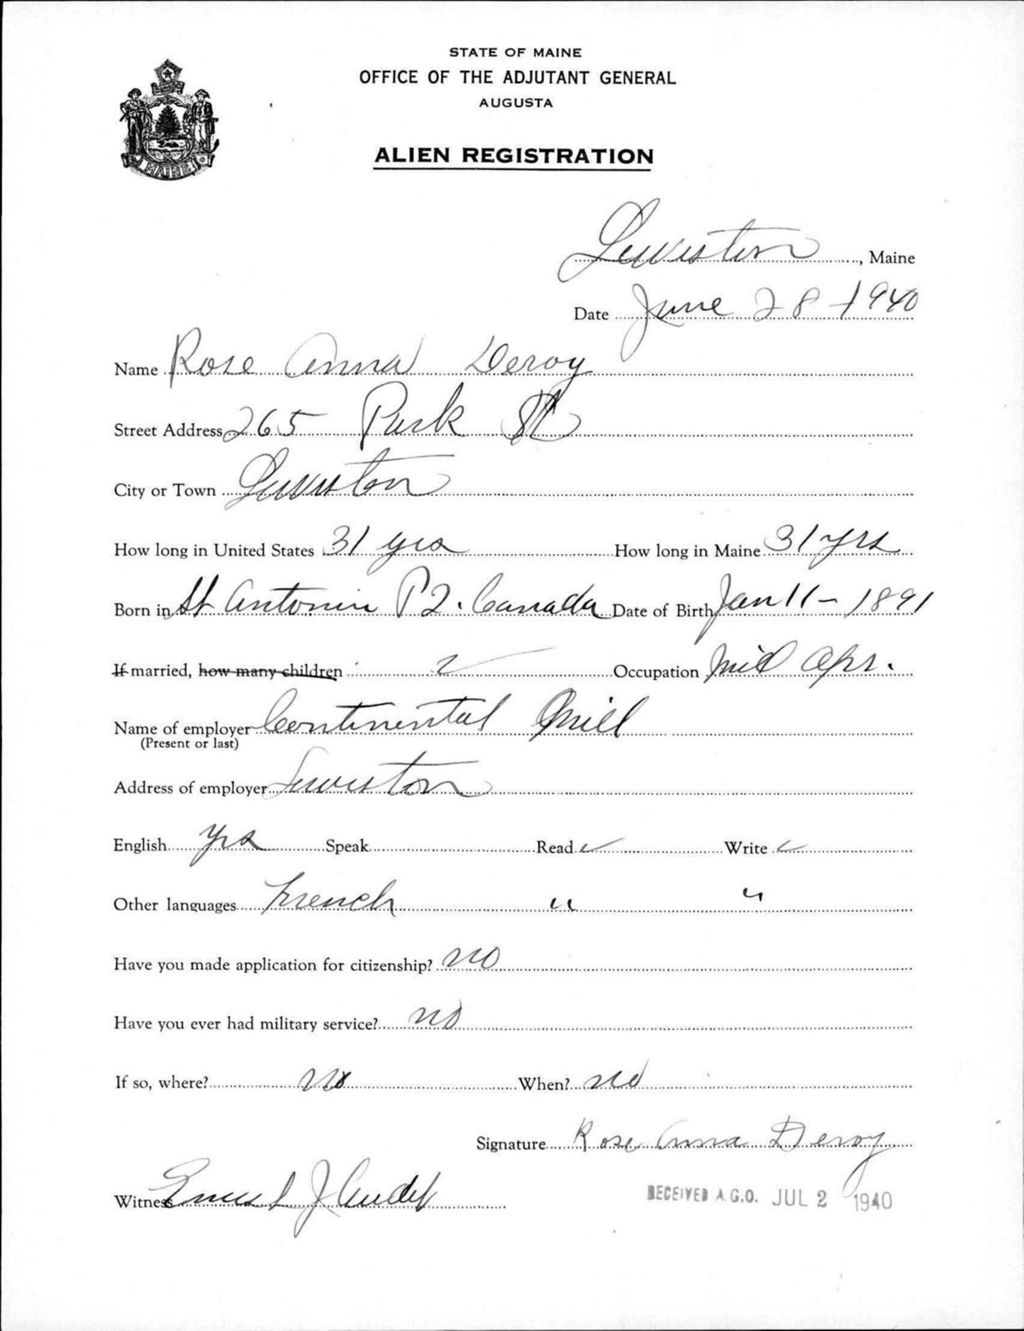 STATE OF MAINE
OFFICE OF THE ADJUTANT GENERAL
AUGUSTA
ALIEN REGISTRATION
MAINE
Lewiston, Maine
Date June 28 - 1940
Name Rose Anna Deroy
Street Address 265 Park St
City or Town Lewiston
How long in United States 31 yrs How long in Maine 31 yrs
Born in St Antonin P Q. Canada Date of Birth Jan 11 - 1891
If married, how many children Occupation Mill Opr.
Name of employer Continental Mill
(Present or last)
Address of employer Lewiston
English yes Speak Read ✓ Write ✓
Other languages French " "
Have you made application for citizenship? no
Have you ever had military service? no
If so, where? no When? no
Signature Rose Anna Deroy
Witness J
RECEIVED A.G.O. JUL 2 1940